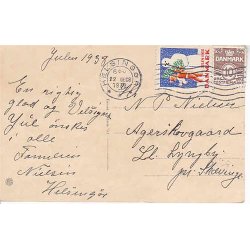 Julen 1939
En rigtig
glad og Velsignet
Jul ønskes
i alle
Familien
Nielsen
Helsingör
HELSINGØR
DANMARK
DANMARK
N P Nielsen
Agerskovgaard
Ll. Lyngby
pr.